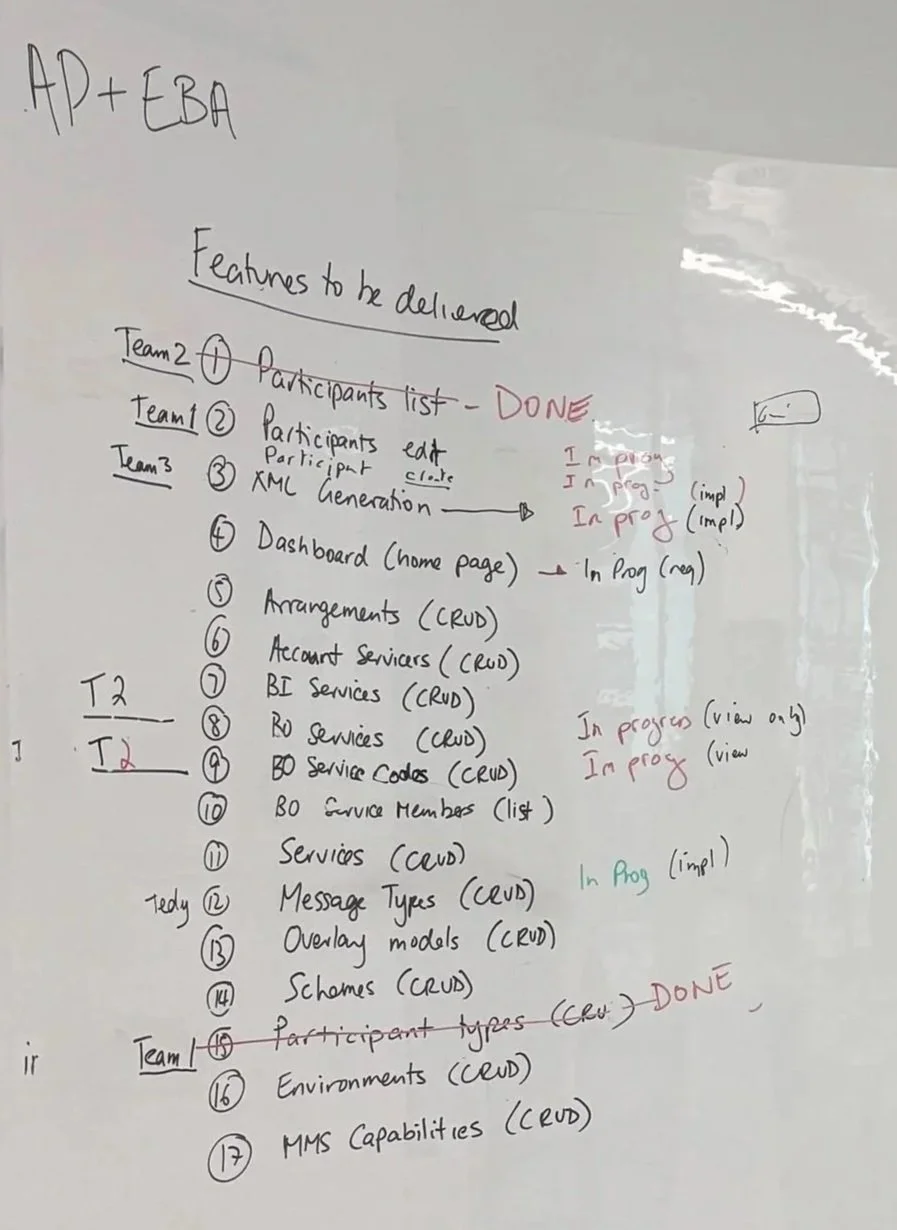 AP + EBA
Features to be delivered
Team 2 ① Participants list - DONE
Team 1 ② Participants edit In prog
Participant clone In prog (impl)
Team 3 ③ XML Generation → In prog (impl)
④ Dashboard (home page) → In Prog (req)
⑤ Arrangements (CRUD)
⑥ Account Servicers (CRUD)
⑦ BI Services (CRUD)
T2 ⑧ BO Services (CRUD) In progress (view only)
T2 ⑨ BO Service Codes (CRUD) In prog (view
⑩ BO Service Members (list)
⑪ Services (CRUD)
Tedy ⑫ Message Types (CRUD) In Prog (impl)
⑬ Overlay models (CRUD)
⑭ Schemes (CRUD)
Team 1 ⑮ Participant types (CRU.) DONE
ir
⑯ Environments (CRUD)
⑰ MMS Capabilities (CRUD)